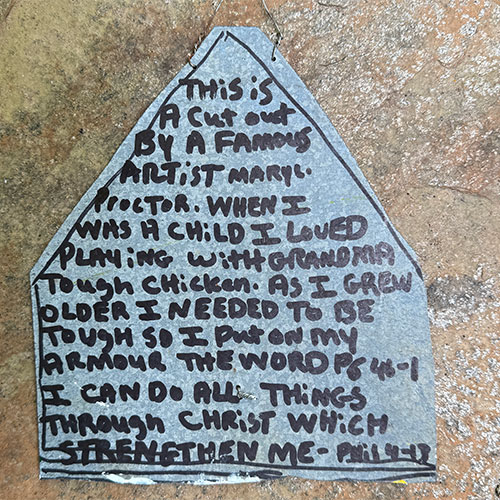 THiS iS
A Cut out
By A FAMOUS
ARTiST MARY L.
PROCTOR. WHEN I
WAS A CHiLD I LOVED
PLAYiNG WiTH GRANDMA
TOUGH CHiCKEN. AS I GREW
OLDER I NEEDED TO BE
TOUGH SO I Put ON MY
ARMOUR THE WORD PS 46-1
I CAN DO ALL THINGS
THROUGH CHRIST WHICH
STRENGTHEN ME - PHIL 4-13